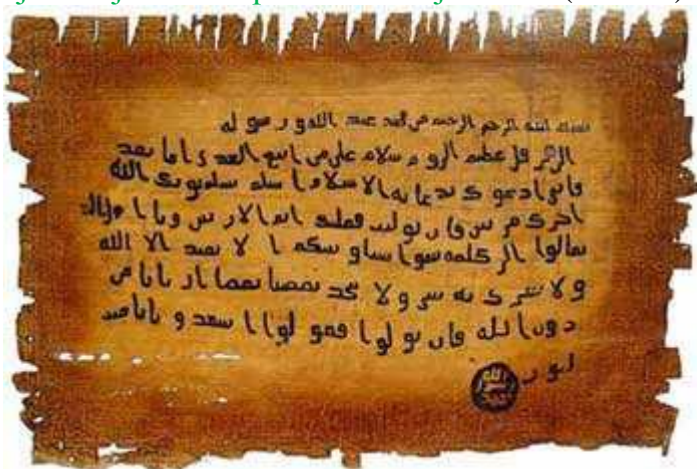 بسم الله الرحمن الرحيم من محمد عبد الله و رسوله
الى هرقل عظيم الروم سلام على من اتبع الهدى اما بعد
فاني ادعوك بدعاية الاسلام اسلم تسلم يوتك الله
اجرك مرتين فان توليت فعليك اثم الاريسين ويا اهل
تعالوا الى كلمة سوا بيننا وبينكم ا لا نعبد الا الله
ولا نشرك به شي ولا يتخذ بعضنا بعضا اربابا من
دون الله فان تولوا فقولوا اشهدو بانا مسلـ
مون
الله
رسول
محمد